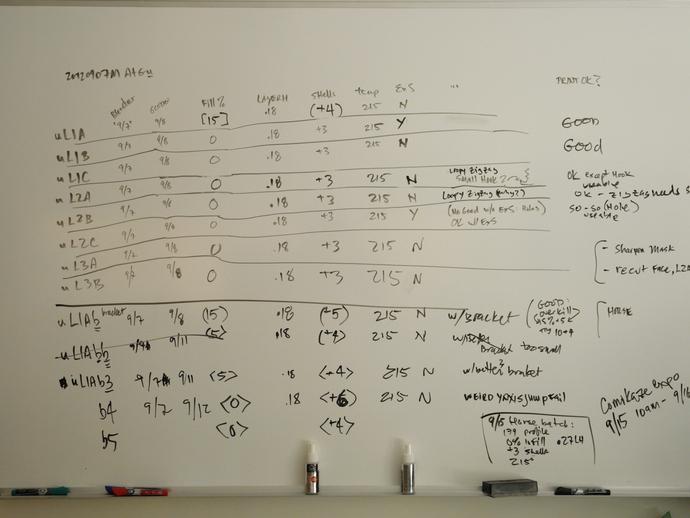 Blender Gcode Fill% LAYERH Shells temp ExS ... PRINT OK?
"9/7" 9/8 [15] .18 (+4) 215 N
uL1A 9/7 9/8 0 .18 +3 215 Y GOOD
uL1B 9/7 9/8 0 .18 +3 215 N GOOD
uL1C 9/7 9/8 0 .18 +3 215 N Loopy Zigzag Small Hook OK except Hook useable
uL2A 9/7 9/8 0 .18 +3 215 N Loopy Zigzag OK - zigzag needs
uL2B 9/7 9/8 0 .18 +3 215 Y (No Good w/o ExS: Holes) OK w/ ExS so-so (Hole) useable
uL2C 9/7 9/8 0 .18 +3 215 N
uL3A 9/7 9/8 0 .18 +3 215 N - Sharpen Mask
uL3B 9/7 9/8 0 .18 +3 215 N - recut Face,
uL1Ab bracket 9/7 9/8 (15) .18 (+5) 215 N w/Bracket (GOOD: overkill
uL1Ab 9/11 <5> .18 (+4) 215 N Bracket too small
uL1Ab3 9/7 9/11 <5> .18 <+4> 215 N w/better bracket
b4 9/7 9/12 <0> .18 <+6> 215 N WEIRD Y AXIS JUMP FAIL
b5 <0> <+4>
Comikaze Expo
9/15 10am - 9/16
9/15 Horse batch:
179 profile
0% infill .27LH
+3 shells
215°